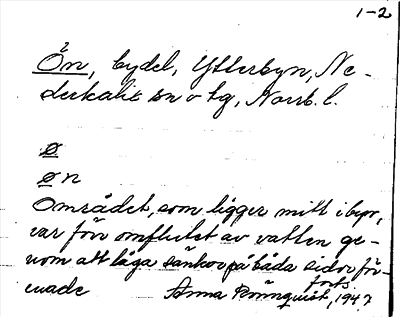 1-2
Ön, bydel, Ytterbyn, Ne-
derkalix sn o tg, Norrb. l.
Ø
Øn
Området, som ligger mitt i byn,
var förr omflutet av vatten ge-
nom att låga sänkor på båda sidor för-
enade
forts.
Anna Rönnquist, 1947